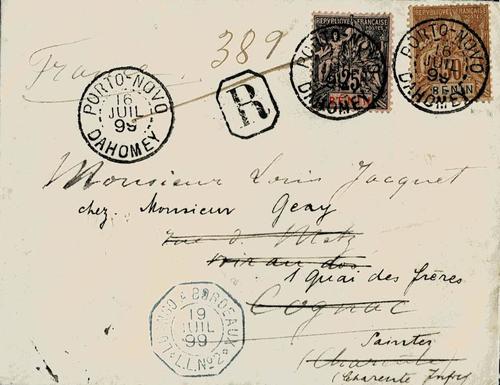 389
France
REPUBLIQUE FRANCAISE
REPUBLIQUE FRANCAISE
PORTO-NOVO
16
JUIL
99
DAHOMEY
R
PORTO-NOVO
16
25
DAHOMEY
PORTO-NOVO
16
JUIL
99
BENIN
DAHOMEY
Monsieur Louis Jacquet
chez Monsieur Geay
rue de Metz
voir au dos
1 Quai des frères
Cognac
Saintes
(Charente)
(Charente Infre)
A BORDEAUX
19
JUIL
99
L.L. No 2